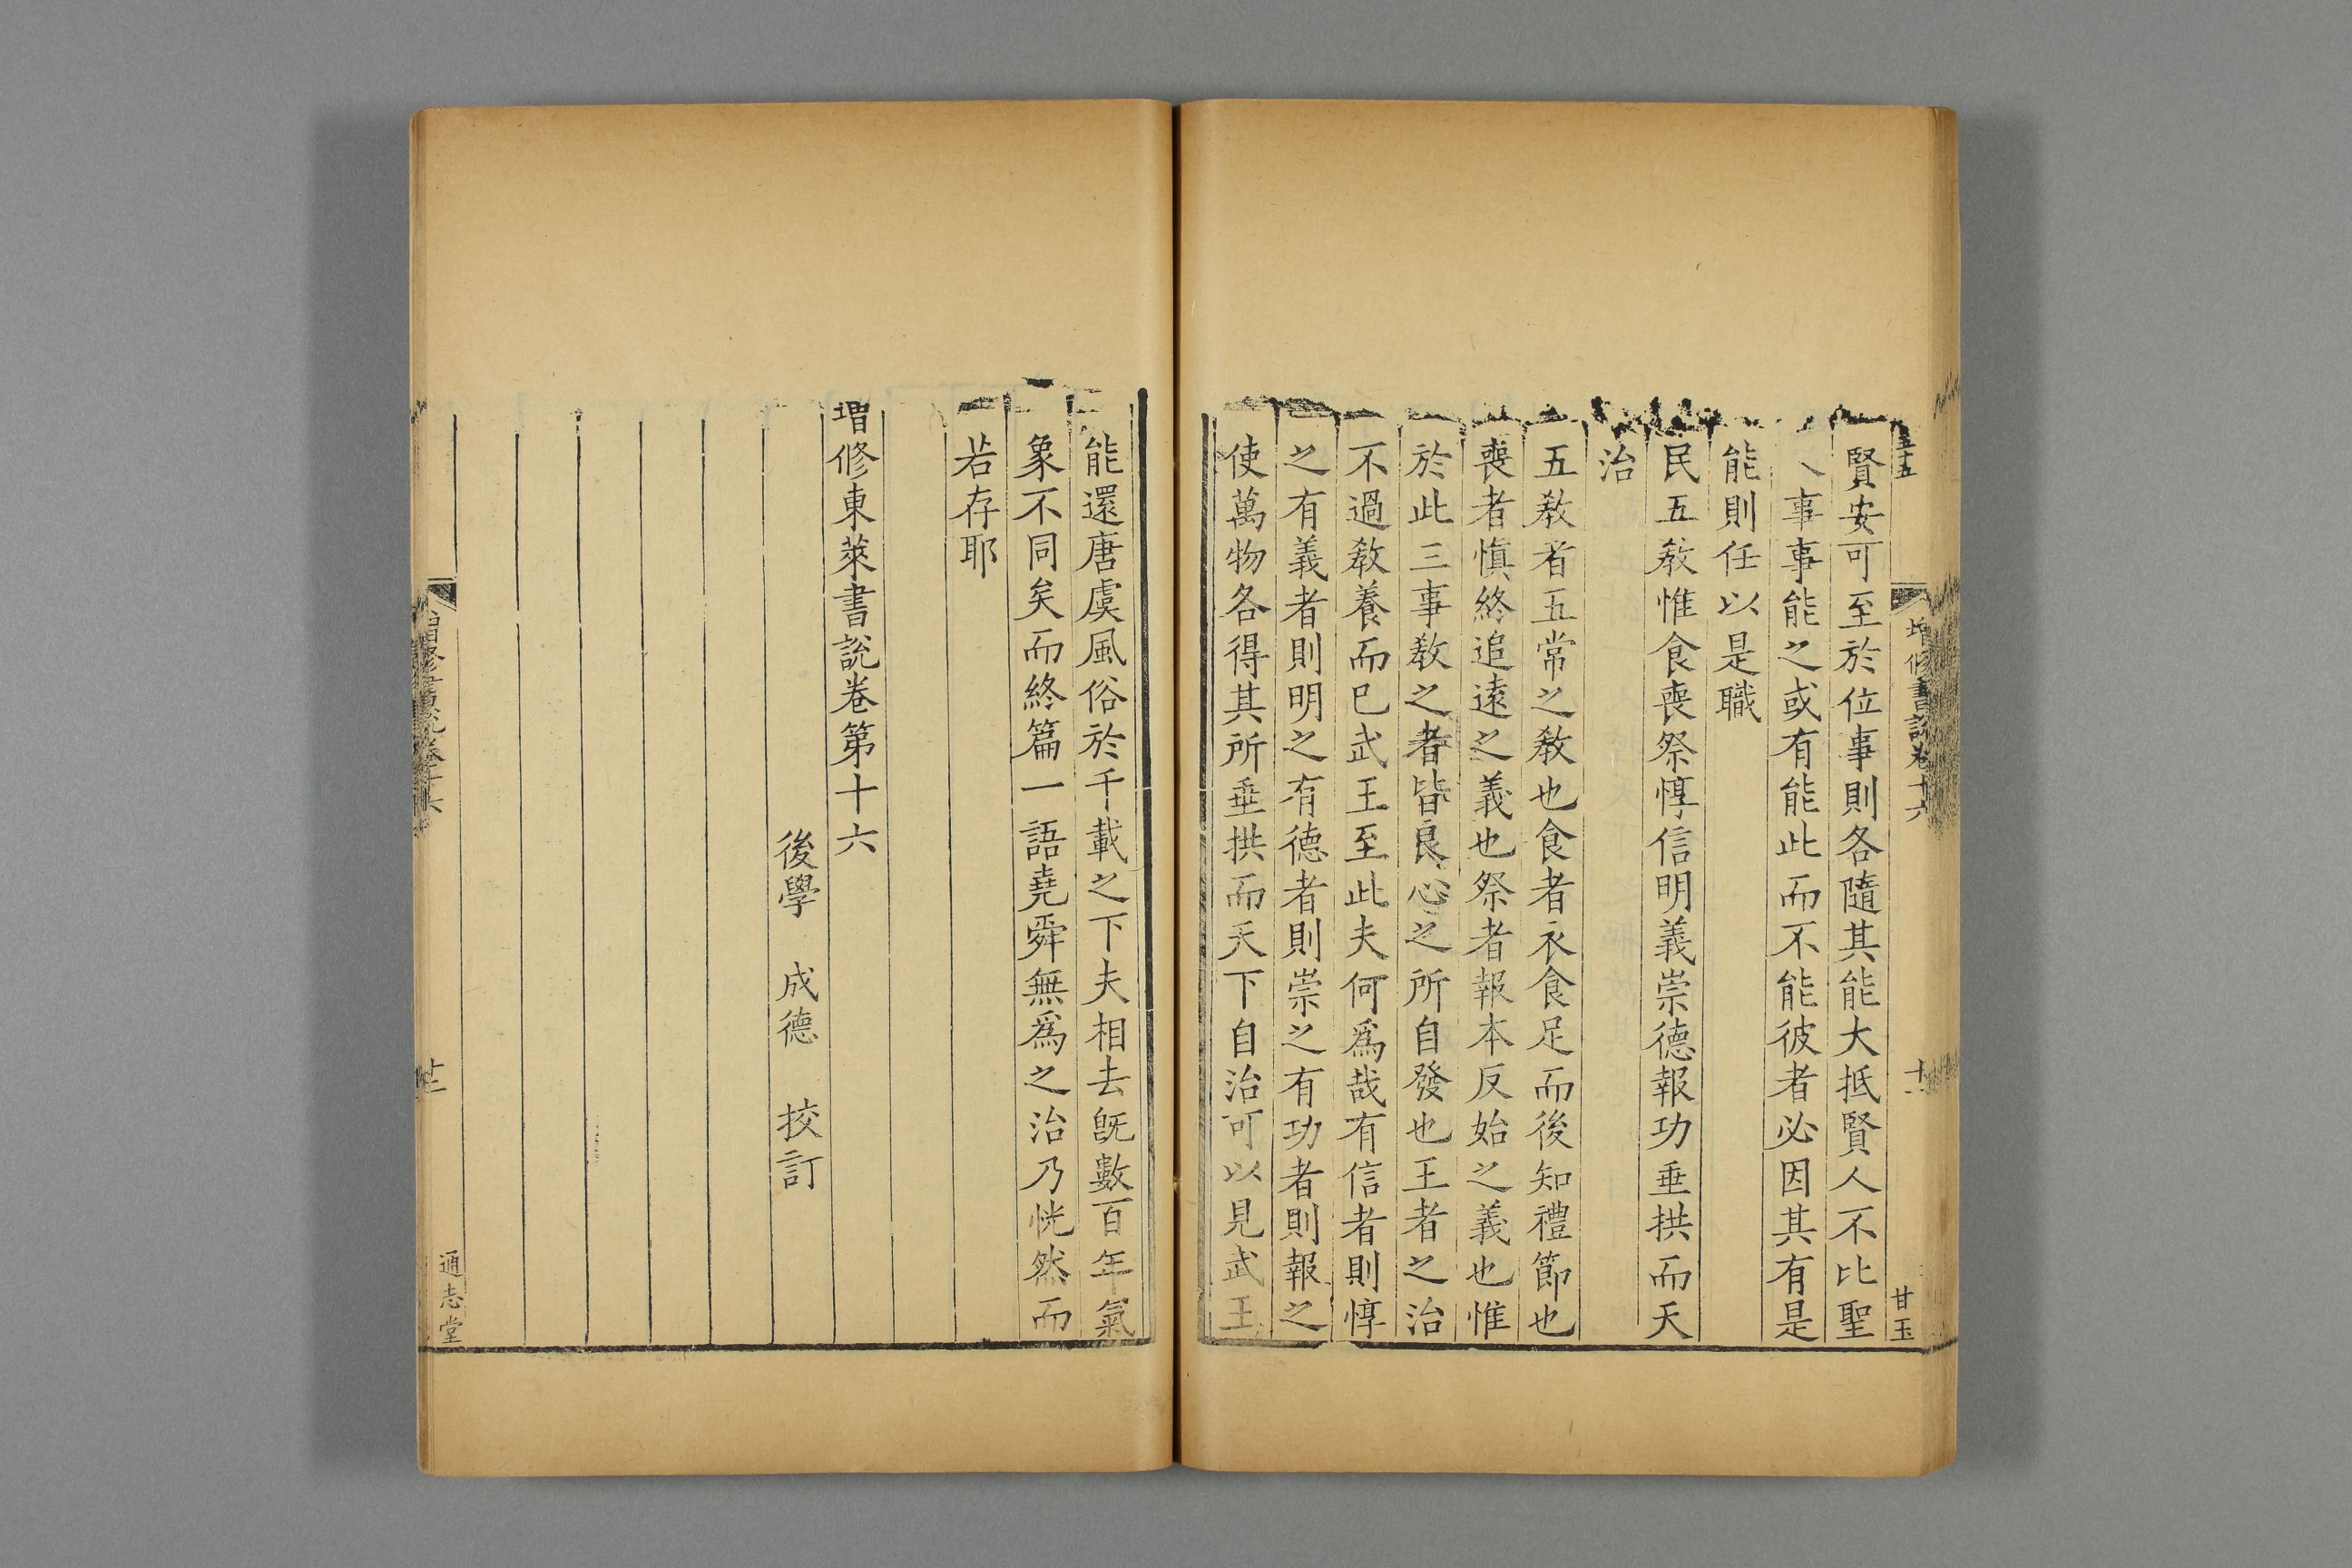 五十五
增修書說卷十六
甘玉
賢安可至於位事則各隨其能大抵賢人不比聖
人事事能之或有能此而不能彼者必因其有是
能則任以是職
民五敎惟食喪祭惇信明義崇德報功垂拱而天
治
五敎者五常之敎也食者衣食足而後知禮節也
喪者愼終追遠之義也祭者報本反始之義也惟
於此三事敎之者皆良心之所自發也王者之治
不過敎養而已武王至此夫何爲哉有信者則惇
之有義者則明之有德者則崇之有功者則報之
使萬物各得其所垂拱而天下自治可以見武王
能還唐虞風俗於千載之下夫相去旣數百年氣
象不同矣而終篇一語堯舜無爲之治乃恍然而
若存耶
增修東萊書說卷第十六
後學 成德 挍訂
通志堂